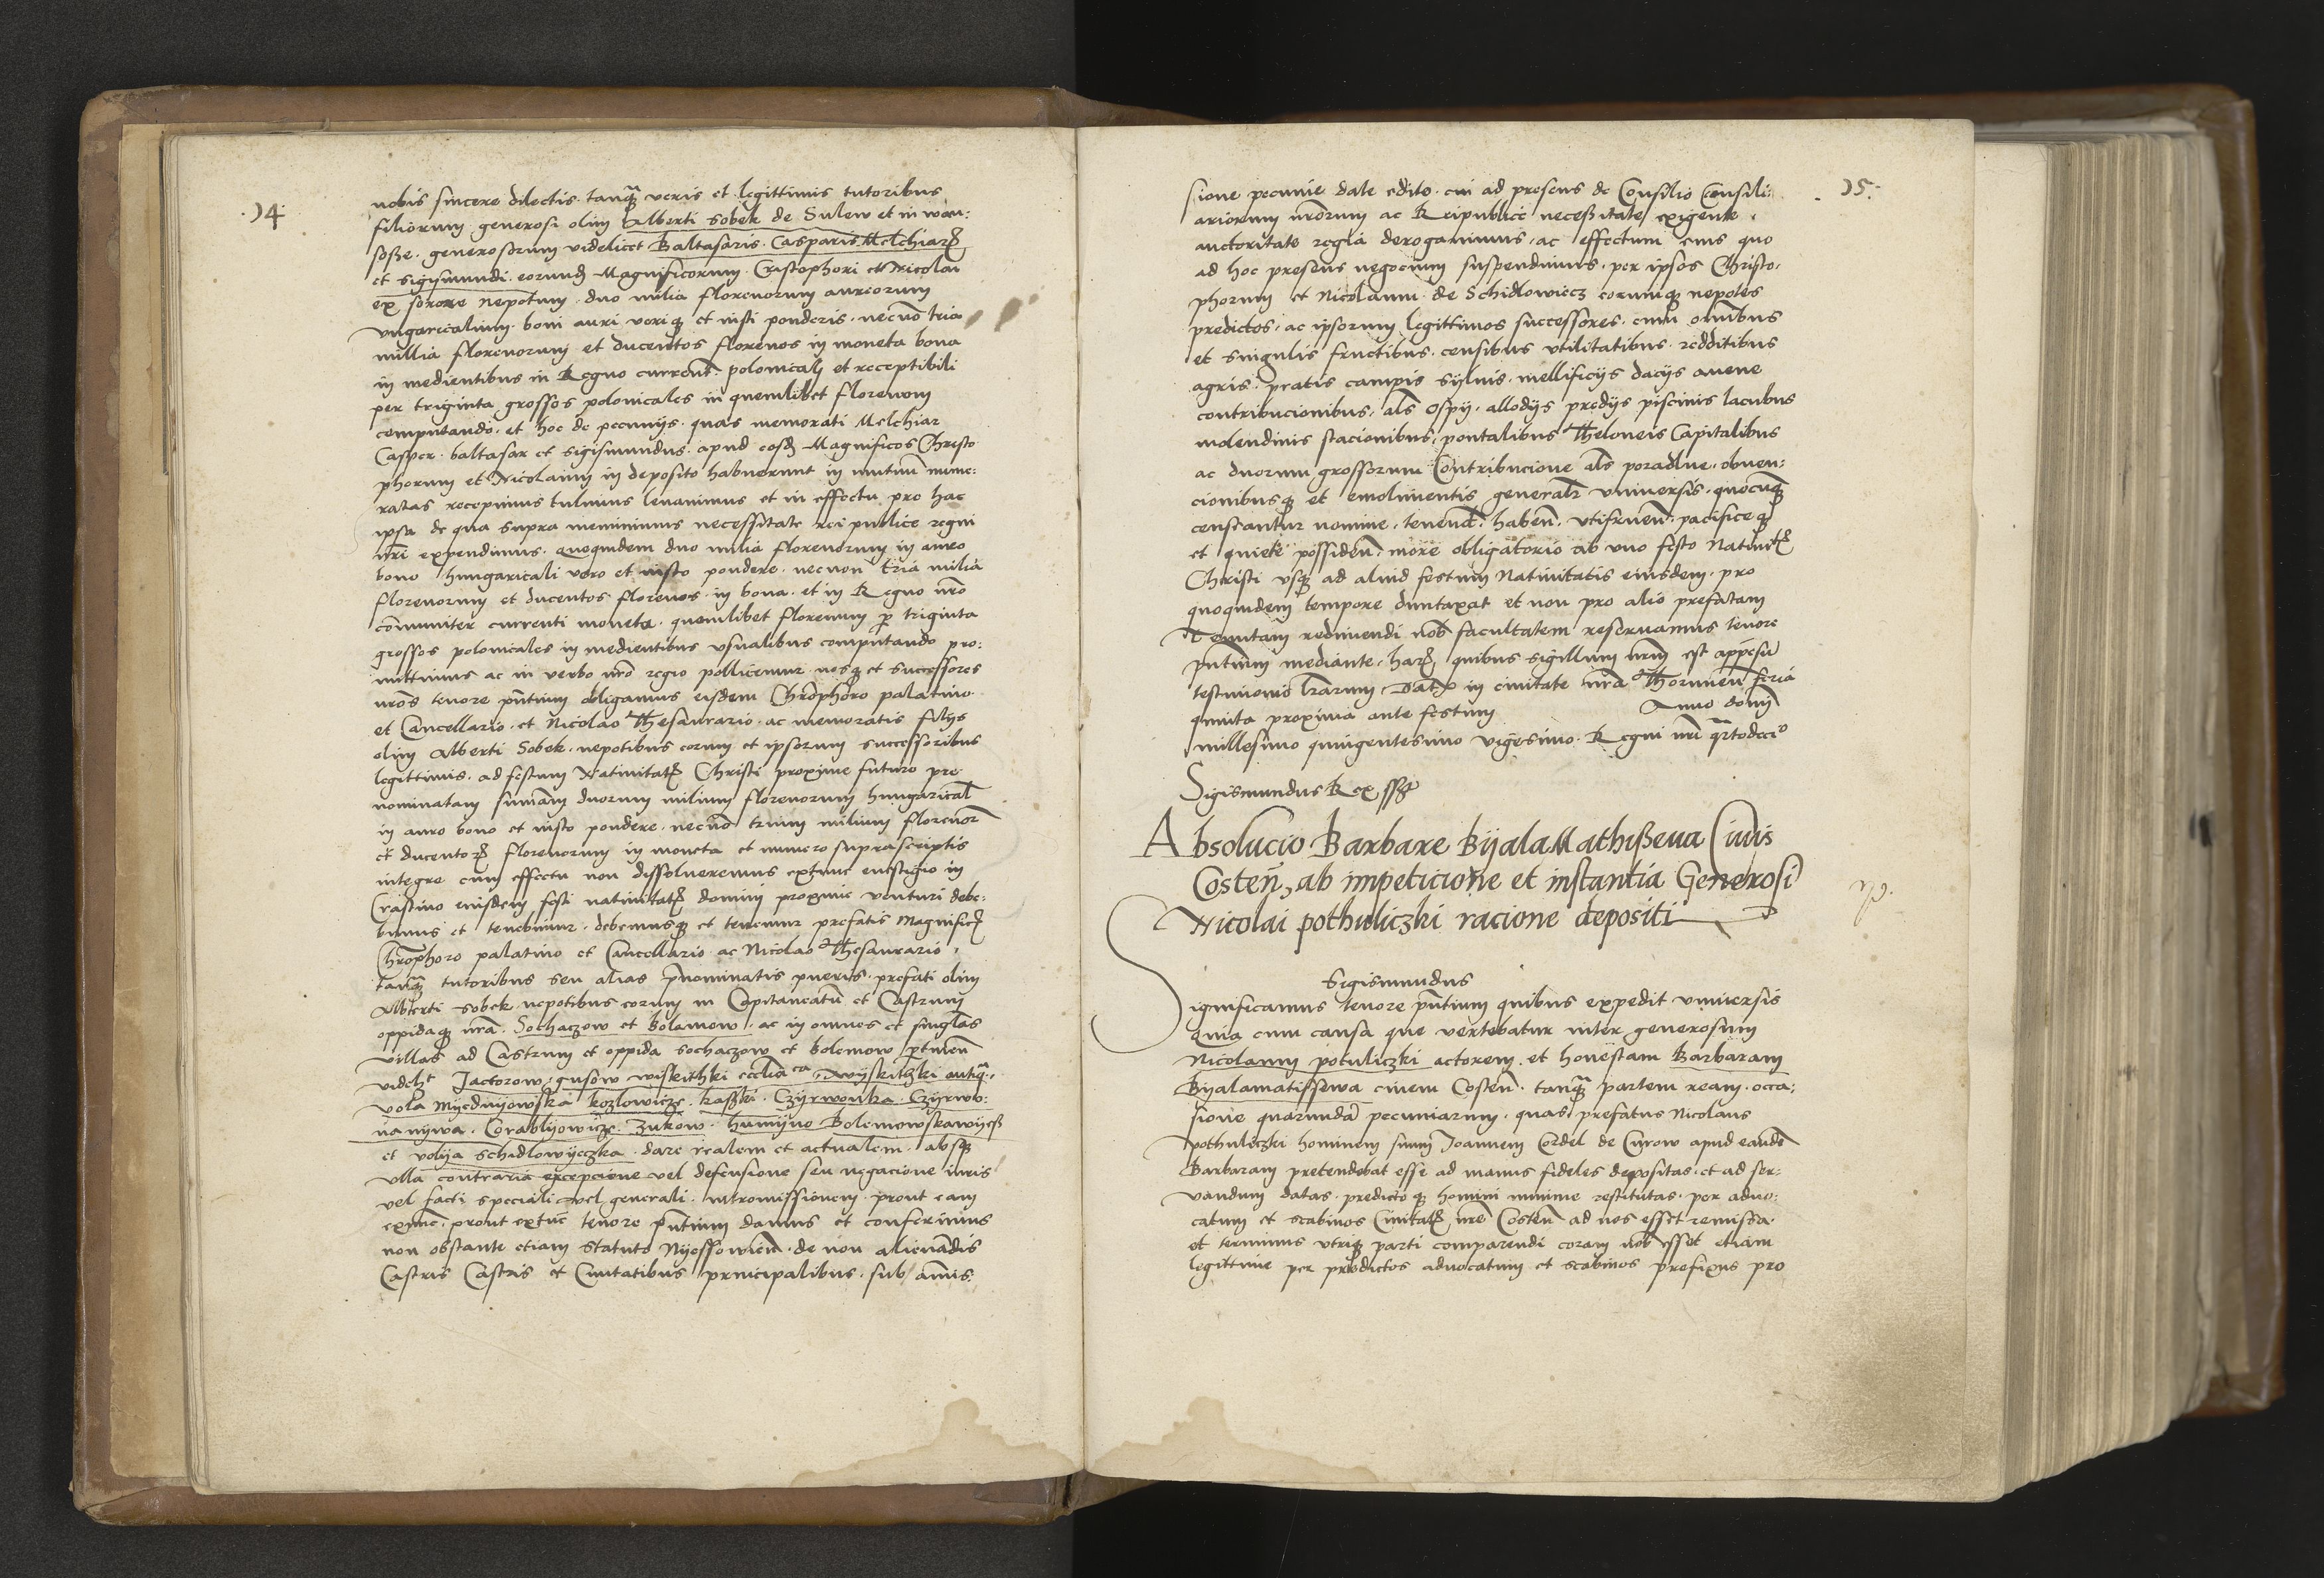 .14.
nobis sincere dilectis tanq̃ veris et legittimis tutoribus
filiorum generosi olim Alberti Sobek de Sulew et in wan:
soße. generosorum videlicet Baltasaris. Casparis. Melchiarꝝ
et sigismundi. eorundꝫ Magnificorum Cristophori et Nicolai
ex sorore nepotum. duo milia florenorum aureorum
vngaricalium. boni auri veriqꝫ et iusti ponderis. necnõ tria
millia florenorum et ducentos florenos in moneta bona
in medientibus in Regno current̃. polonicalj et receptibili
per triginta grossos polonicales in quemlibet florenom
computando. et hoc de pecunijs quas memorati Melchiar
Casper. baltasar et sigismundus. apud eosdꝫ Magnificos Christo
phorum et Nicolaum in deposito habuerunt in mutuũ nume:
ratas recepimus tulimus levavimus et in effectu pro hac
ipsa de qua supra meminimus necessitate rei publice regni
nrĩ expendimus. quequidem duo milia florenorum in auro
bono hungaricali vero et iusto pondere. necnon tria milia
florenorum et ducentos florenos in bona. et in Regno nrõ
cõmuniter currenti moneta. quemlibet florenum ꝑ triginta
grossos polonicales in medientibus vsualibus computando pro:
mittimus ac in verbo nrõ regio pollicemur. nosqꝫ et successores
nros tenore pñtium obligamus eisdem Chrophõro palatino
et Cancellario. et Nicolao Thesaurario. ac memoratis filijs
olim Alberti Sobek. nepotibus eorum et ipsorum successoribus
legittimis. ad festum Natiuitatꝭ Christi proxime futuro pre
nominatam sum̃am duorum milium florenorum hungarical̃
in auro bono et iusto pondere. necnõ trium milium florenoꝝ
et ducentoꝝ florenorum in moneta et numero suprascriptis
integre cum effectu non dissolueremus extunc euestigio in
Crastino eiusdem festi natiuitatꝭ domini proxime venturi debe:
bimus et tenebimur. debemusqꝫ et tenemur prefatis Magnificꝭ
Chrophõro palatino et Cancellario ac Nicolao Thesaurario.
tanq̃ tutoribus seu alias p̃nominatis pueris. prefati olim
Alberti sobek nepotibus eorum in Capitaneatũ et Castrum
oppidaqꝫ nrã. Sochaczow et Bolamow. ac in omnes et singlãs
villas ad Castrum et oppida sochaczow et bolemow ꝑtinen̄
videlꝫt Jactorow, gusow wiskithki ecclia ca wyskitzki antiq̃.
vola Myedniyowska kozlowicze. kaszki. Czyrwonka. Czyrwo:
na nywa. Corablyowicze. Zukow. humyno Bolemowskawyeß
et volya schidlowyeczka. dare realem et actualem. absqꝫ
ulla contraria excepcione vel defensione seu negacione iuris
vel facti speciali vel generali. intromissionem. prout eam
exnũc. prout extũc tenore pñtium damus et conferimus
non obstante etiam Statuto Nyessowien̄. de non alienãdis
Castris Castris et Ciuitatibus principalibus. sub amis.
.15.
sione pecunie date edito. cui ad presens de Consilio Consili:
ariorum nrõrum ac Reipublice necessitate exigente.
auctoritate regia derogauimus. ac effectum eius quo
ad hoc presens negocium suspendimus. per ipsos Christo.
phorum et Nicolaum. de Schidlowiecz eorumqꝫ nepotes
predictos. ac ipsorum legittimos successores. cum omnibus
et singulis fructibus. censibus vtilitatibus. redditibus
agris. pratis campis syluis. mellificijs dacijs auene
contribucionibus. als̃ Ospy. allodijs predijs piscinis lacubus
molendinis stacionibus, pontalibus Theloneis Capitalibus
ac duorum grossorum Contribucione als̃ poradlne. obuen:
cionibusqꝫ et emolimentis generalr̃ vniuersis. quocunqꝫ
censeantur nomine. tenend̃. haben̄. vtifruen̄. pacificeqꝫ
et quiete possiden̄. more obligatorio ab vno festo Natiuitꝭ
Christi vsqꝫ ad aliud festum Natiuitatis eiusdem. pro
quoquidem tempore duntaxat et non pro alio prefatam
Tenutam redimendi nob̃ facultatem reseruamus tenore
pñtium mediante. harꝝ quibus sigillum nrm̃ est appẽsũ
testimonio lrãrum. Datꝭ in ciuitate nrã Thorunen̄ feria
quinta proxima ante festum Anno domĩ
millesimo quingentesimo vigesimo. Regni nrĩ q̃rtodecio
Sigismundus Rex sszt
Absolucio Barbare Byala Mathißeua Ciuis
Costen̄, ab impeticione et instantia Generosi
Nicolai pothuliczki racione depositi
Sigismundus
Significamus tenore pñtium quibus expedit vniuersis
Quia cum causa que vertebatur inter generosum
Nicolaum potuliczki actorem. et honestam Barbaram
Byalamatissewa ciuem Costen̄. tanq̃ partem ream. occa:
sione quarundã pecuniarum. quas prefatus Nicolaus
pothuliczki hominem suum Joannem Cordel de Curow apud eandẽ
Barbaram pretendebat esse ad manus fideles depositas. et ad ser:
vandum datas. predictoqꝫ homini minime restitutas. per aduo:
catum et scabinos Ciuitatꝭ nrẽ Costen̄ ad nos esset remissa.
et terminus vtriqꝫ parti comparendi coram nob̃ esset etiam
legittime per predictos aduocatum et scabinos prefixus pro